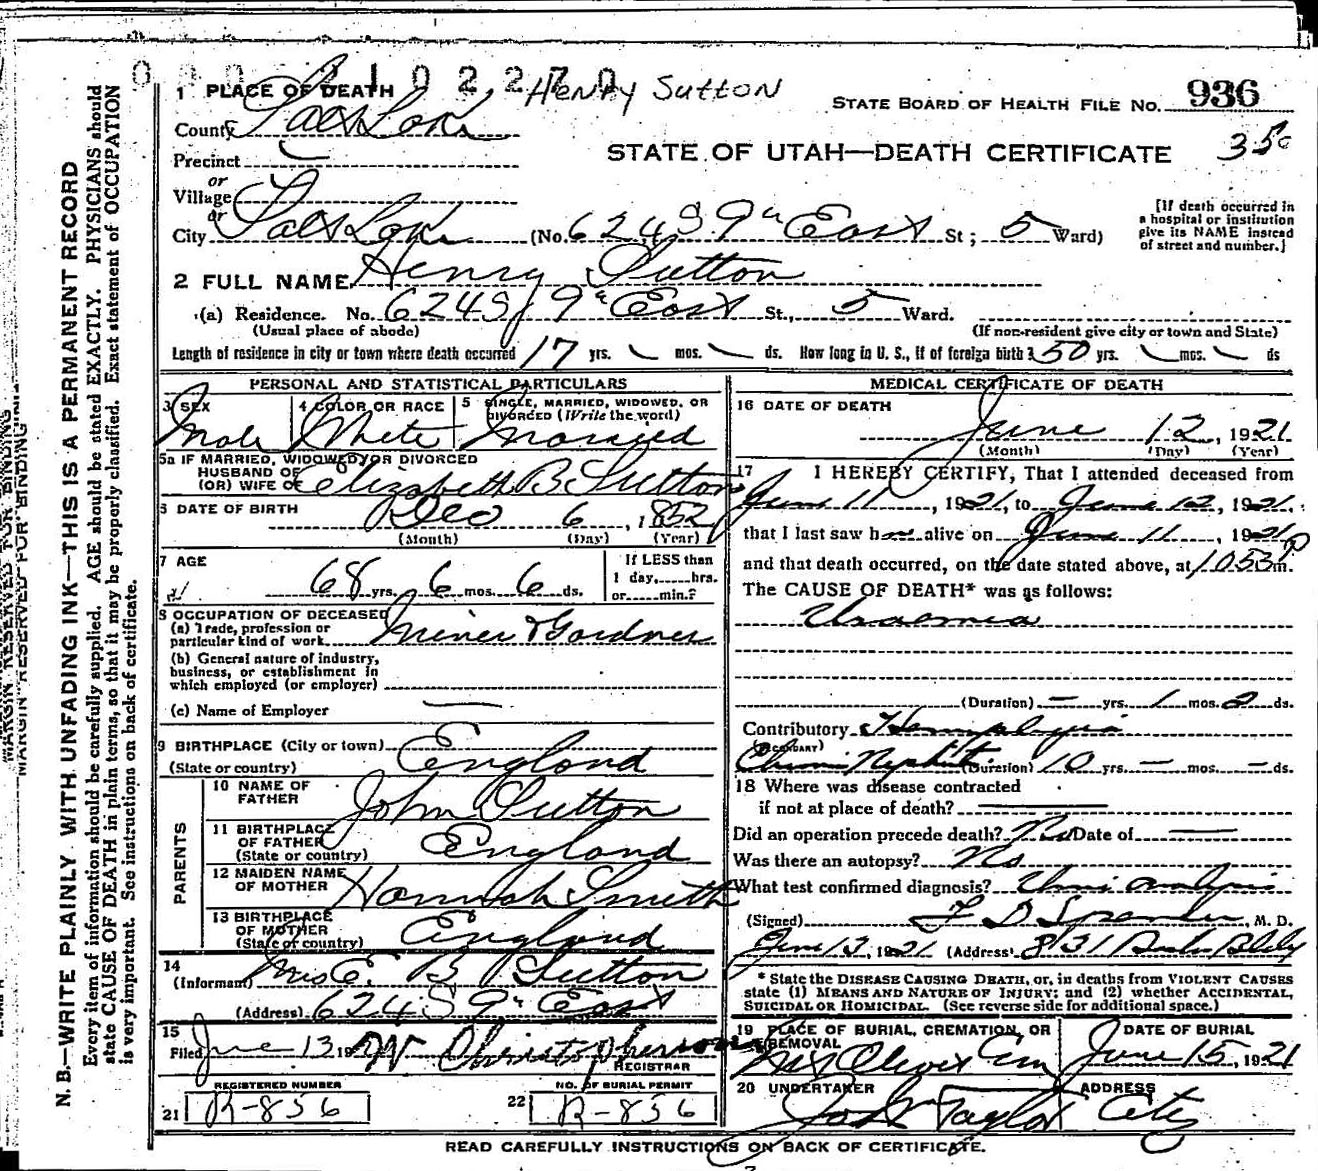 Henry Sutton
1 PLACE OF DEATH
STATE BOARD OF HEALTH FILE No. 936
County Salt Lake
35c
Precinct
STATE OF UTAH—DEATH CERTIFICATE
or
Village
or
City Salt Lake (No. 624 S 9th East St; 5 Ward)
[If death occurred in
a hospital or institution
give its NAME instead
of street and number.]
2 FULL NAME Henry Sutton
(a) Residence. No. 624 S 9th East St., 5 Ward.
(Usual place of abode) (If non-resident give city or town and State)
Length of residence in city or town where death occurred 17 yrs. mos. ds. How long in U. S., if of foreign birth? 50 yrs. mos. ds
PERSONAL AND STATISTICAL PARTICULARS
3 SEX
Male
4 COLOR OR RACE
White
5 SINGLE, MARRIED, WIDOWED, OR
DIVORCED (Write the word)
Married
5a IF MARRIED, WIDOWED, OR DIVORCED
HUSBAND OF
(OR) WIFE OF Elizabeth B Sutton
6 DATE OF BIRTH
Dec 6, 1852
(Month) (Day) (Year)
7 AGE
68 yrs. 6 mos. 6 ds.
If LESS than
1 day,......hrs.
or......min.?
8 OCCUPATION OF DECEASED
(a) Trade, profession or
particular kind of work Miner & Gardner
(b) General nature of industry,
business, or establishment in
which employed (or employer)
(c) Name of Employer
9 BIRTHPLACE (City or town)
(State or country) England
PARENTS
10 NAME OF
FATHER John Sutton
11 BIRTHPLACE
OF FATHER
(State or country) England
12 MAIDEN NAME
OF MOTHER Hannah Smith
13 BIRTHPLACE
OF MOTHER
(State or country) England
14
(Informant) Mrs E. B Sutton
(Address) 624 S 9th East
15
Filed June 13, 19 W Christopherson
REGISTRAR
REGISTERED NUMBER
21 R-856
NO. OF BURIAL PERMIT
22 R-856
MEDICAL CERTIFICATE OF DEATH
16 DATE OF DEATH
June 12, 1921
(Month) (Day) (Year)
17 I HEREBY CERTIFY, That I attended deceased from
June 11, 1921, to June 12, 1921.
that I last saw him alive on June 11, 1921
and that death occurred, on the date stated above, at 10 53 P m.
The CAUSE OF DEATH* was as follows:
Uraemia
(Duration) — yrs. 1 mos. 2 ds.
Contributory Hemiplegia
(SECONDARY)
Chronic Nephritis (Duration) 10 yrs. — mos. — ds.
18 Where was disease contracted
if not at place of death?
Did an operation precede death? No Date of —
Was there an autopsy? No
What test confirmed diagnosis? Urine analysis
(Signed) F D Spencer M. D.
June 13, 1921 (Address)
* State the DISEASE CAUSING DEATH, or, in deaths from VIOLENT CAUSES
state (1) MEANS AND NATURE OF INJURY; and (2) whether ACCIDENTAL,
SUICIDAL OR HOMICIDAL. (See reverse side for additional space.)
19 PLACE OF BURIAL, CREMATION, OR
REMOVAL
Mt Olivet Cem
DATE OF BURIAL
June 15, 1921
20 UNDERTAKER
Taylor
ADDRESS
City
READ CAREFULLY INSTRUCTIONS ON BACK OF CERTIFICATE.
MARGIN RESERVED FOR BINDING
N. B.—WRITE PLAINLY WITH UNFADING INK—THIS IS A PERMANENT RECORD
Every item of information should be carefully supplied. AGE should be stated EXACTLY. PHYSICIANS should
state CAUSE OF DEATH in plain terms, so that it may be properly classified. Exact statement of OCCUPATION
is very important. See instructions on back of certificate.